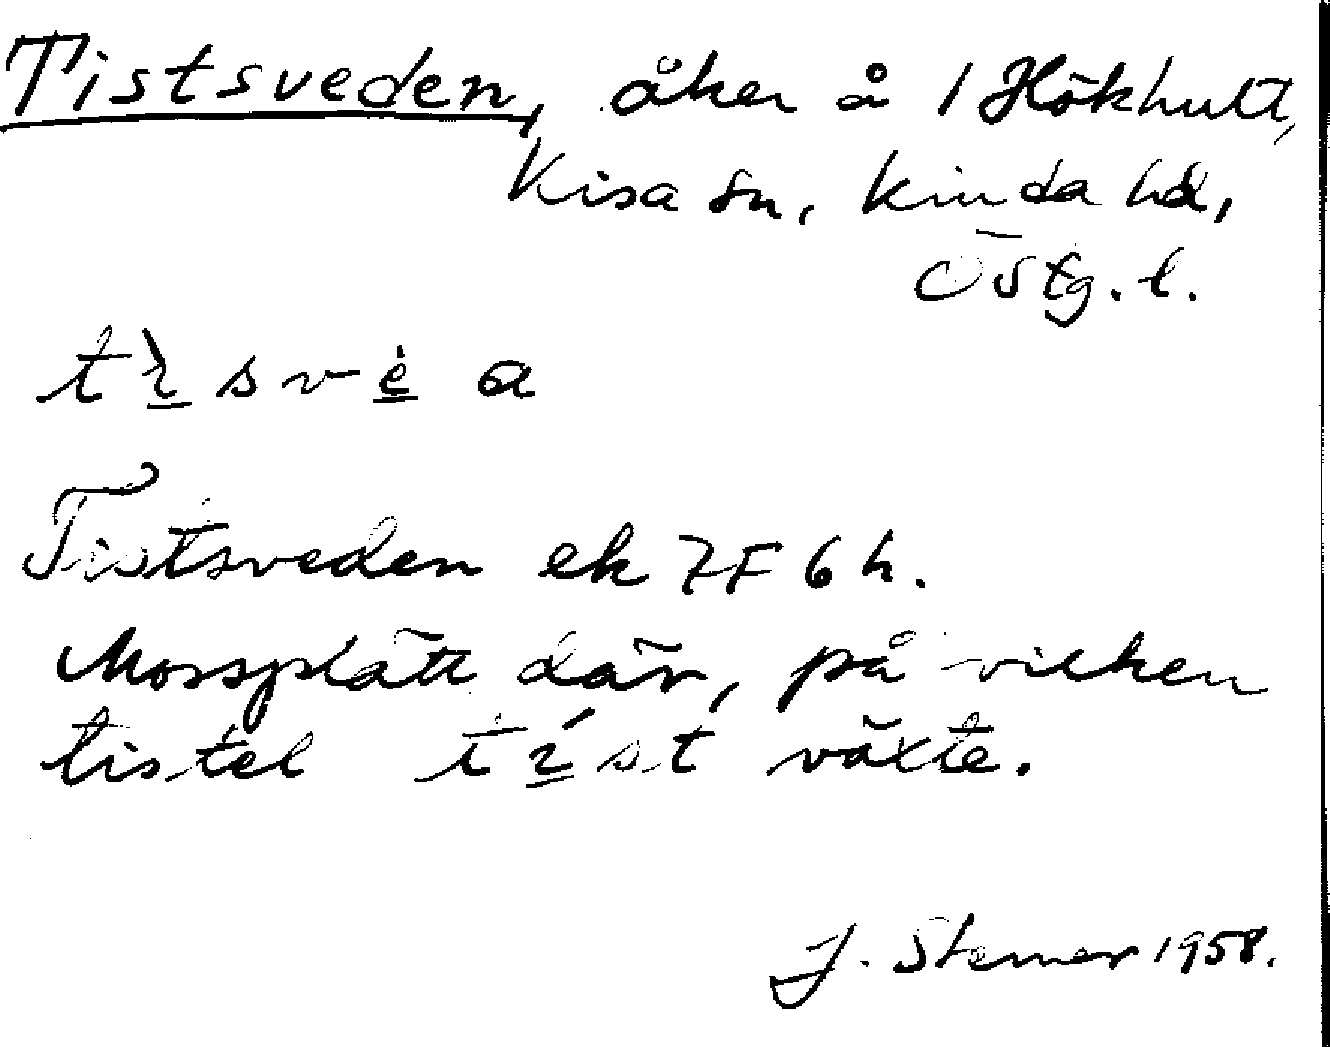 Tistsveden, åker å 1 Hökhult,
Kisa sn, Kinda hd,
Östg. l.
tı̠̀svė̠a
Tistsveden ek 7F 6h.
Mossplätt där, på vilken
tistel tı̠́st växte.
J. Sterner 1958.